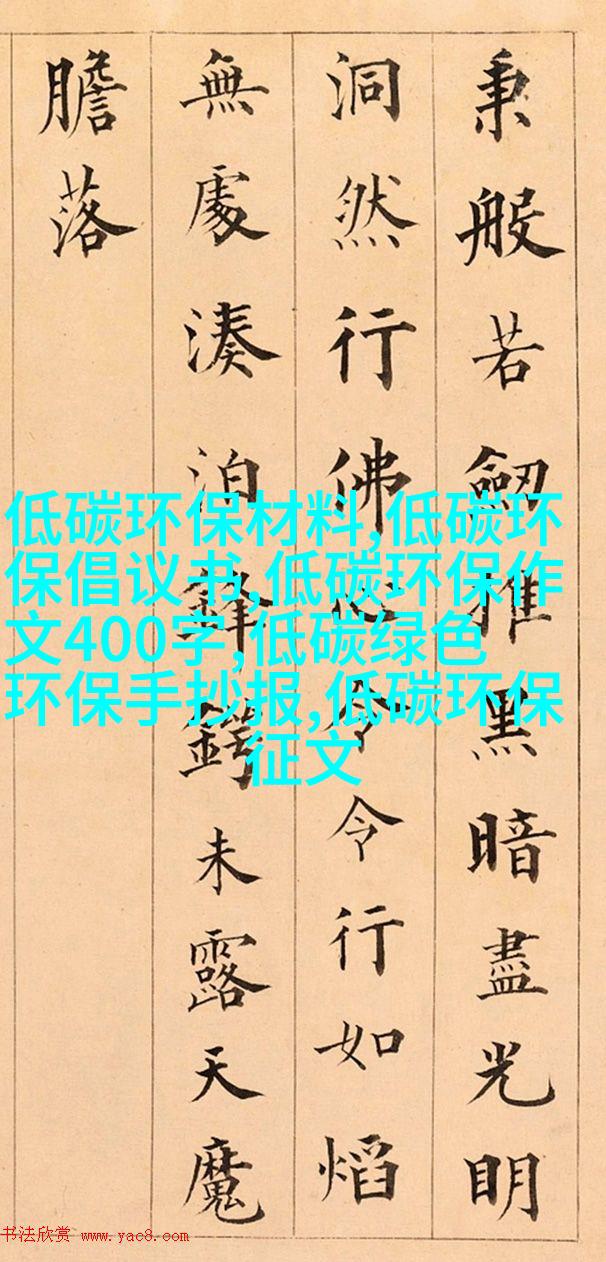 秉般若劔摧黑暗盡光明
洞然行佛心令令行如熖
無處湊泊鋒鍔未露天魔
膽落
低碳环保材料,低碳环
保倡议书,低碳环保作
文400字,低碳绿色
环保手抄报,低碳环保
征文
书法欣赏 www.yac8.com